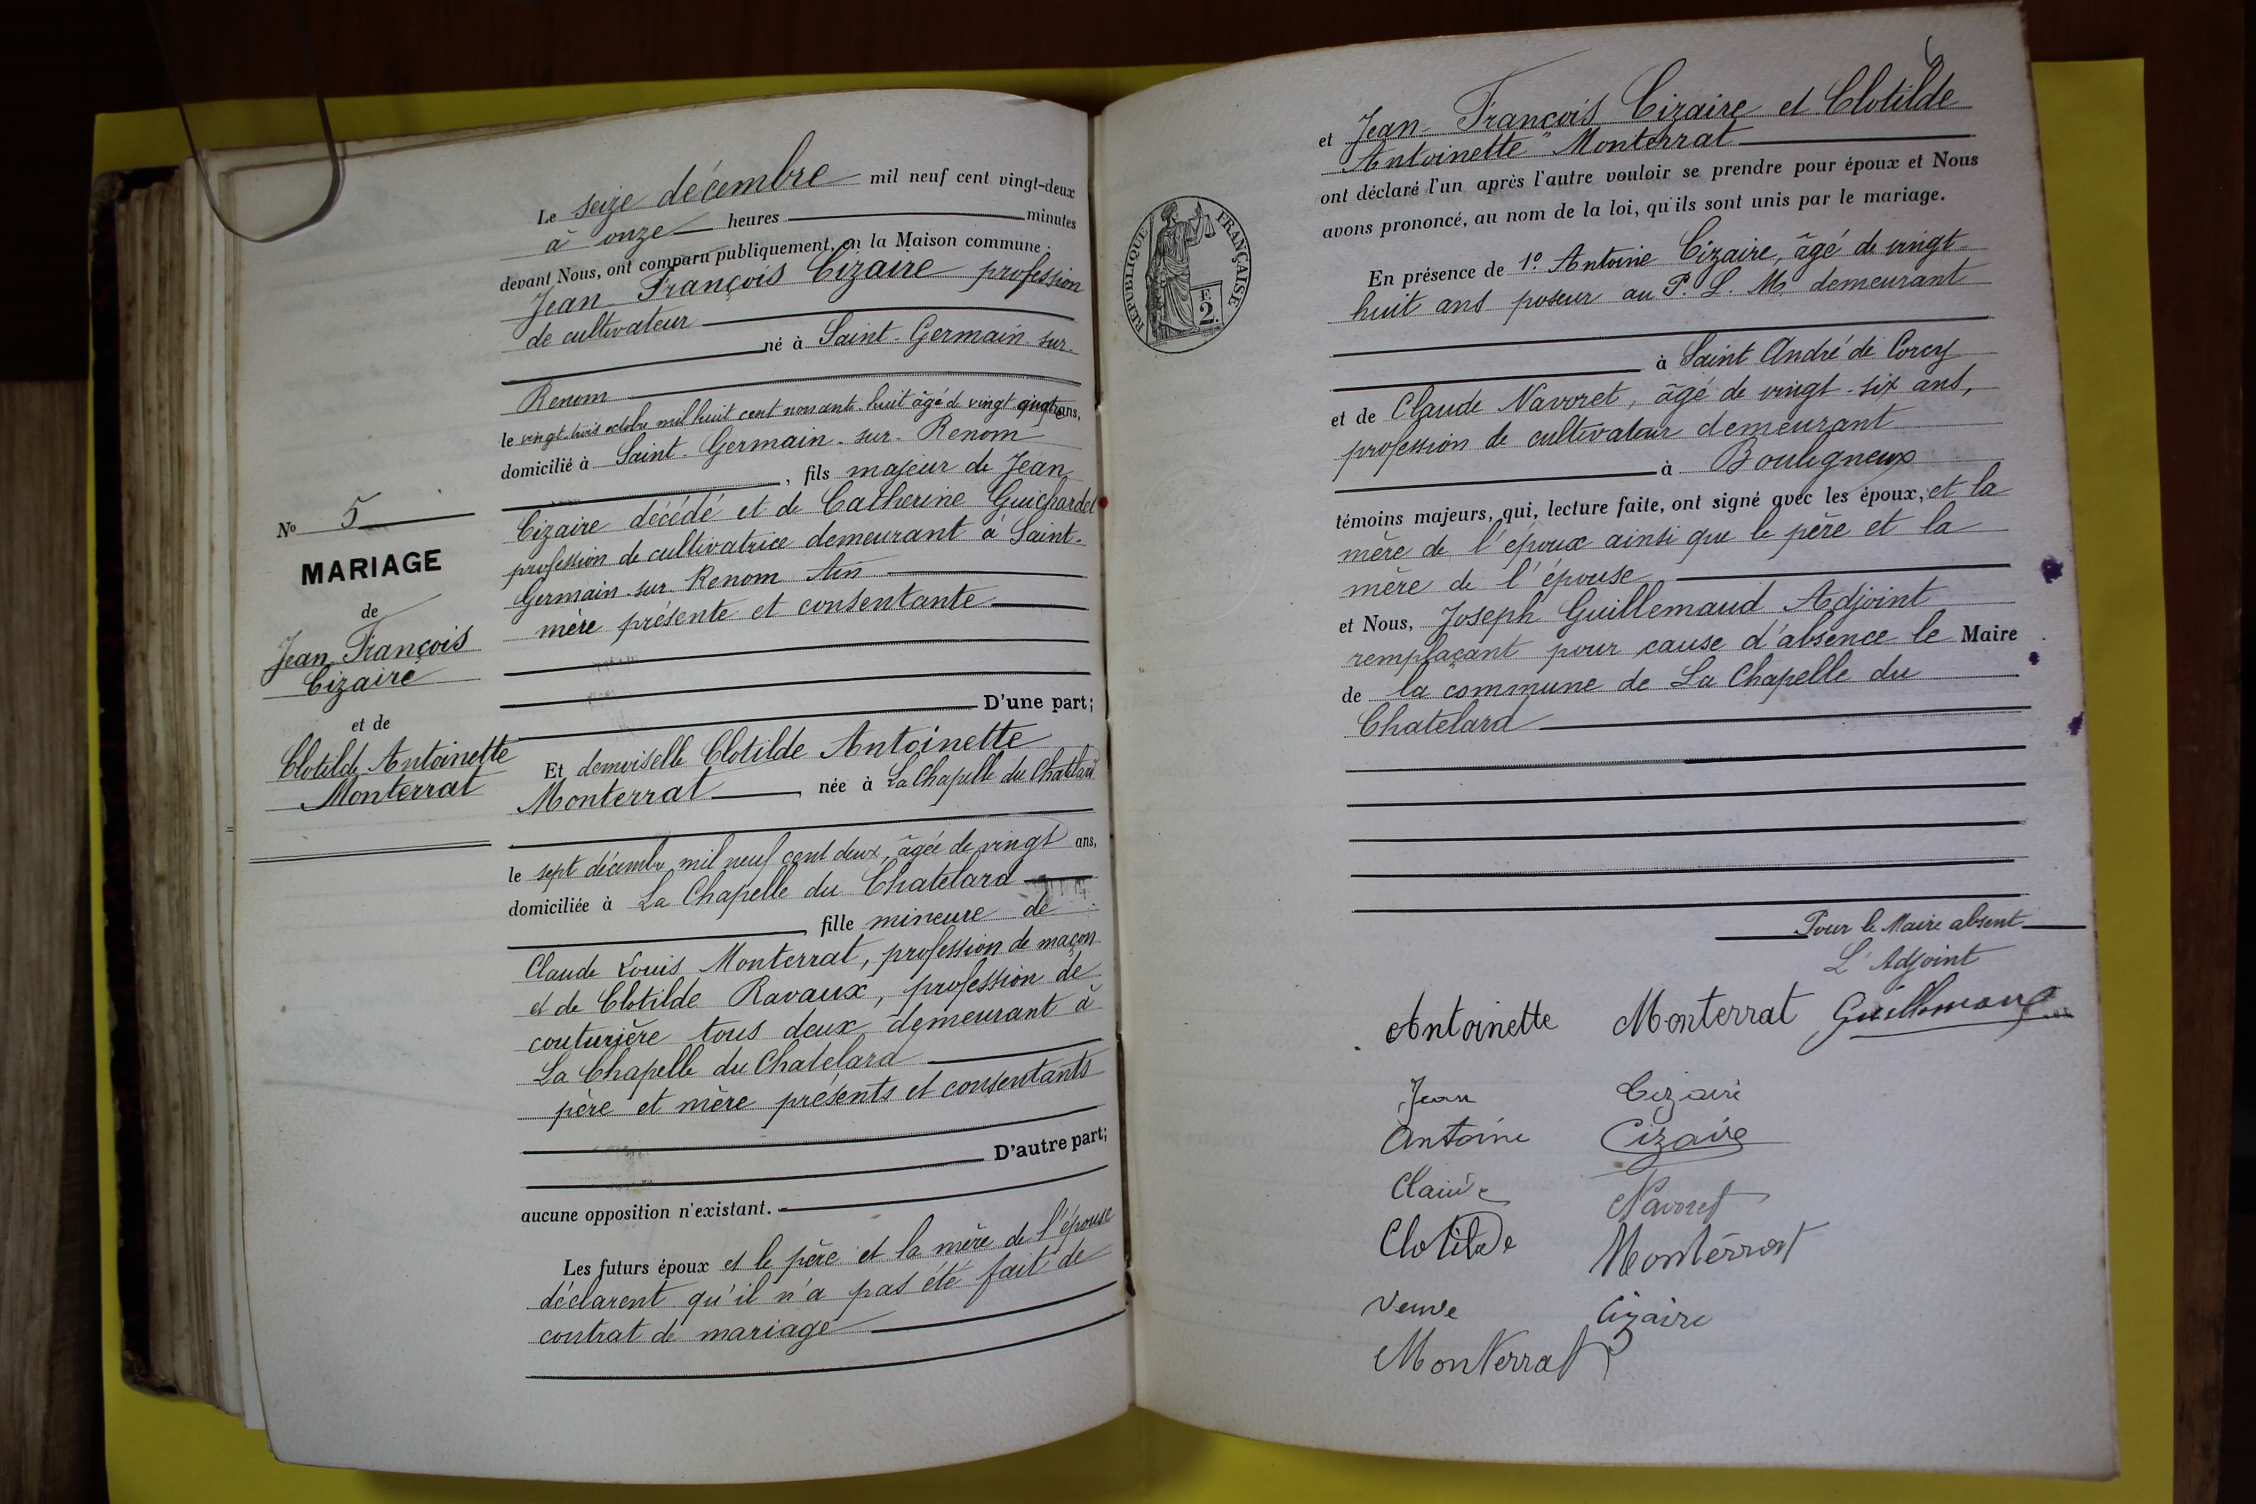 N° 5
MARIAGE
de
Jean François
Cizaire
et de
Clotilde Antoinette
Monterrat
Le seize décembre mil neuf cent vingt-deux
à onze heures minutes
devant Nous, ont comparu publiquement, en la Maison commune :
Jean François Cizaire profession
de cultivateur
né à Saint-Germain-sur-
Renom
le vingt-trois octobre mil huit cent nonante-huit âgé d vingt quatre ans,
domicilié à Saint-Germain-sur-Renom
, fils majeur de Jean
Cizaire décédé et de Catherine Guichardet
profession de cultivatrice demeurant à Saint-
Germain-sur Renom Ain
mère présente et consentante
D'une part;
Et demoiselle Clotilde Antoinette
Monterrat née à La Chapelle du Chatelard
le sept décembre mil neuf cent deux, âgée de vingt ans,
domiciliée à La Chapelle du Chatelard
fille mineure de
Claude Louis Monterrat, profession de maçon
et de Clotilde Ravaux, profession de
couturière tous deux demeurant à
La Chapelle du Chatelard
père et mère présents et consentants
D'autre part;
aucune opposition n'existant.
Les futurs époux et le père et la mère de l'épouse
déclarent qu'il n'a pas été fait de
contrat de mariage
6
et Jean-François Cizaire et Clotilde
Antoinette Monterrat
ont déclaré l'un après l'autre vouloir se prendre pour époux et Nous
avons prononcé, au nom de la loi, qu'ils sont unis par le mariage.
RÉPUBLIQUE FRANÇAISE
F.
2.
En présence de 1° Antoine Cizaire, âgé de vingt-
huit ans poseur au P. L. M. demeurant
à Saint André de Corcy
et de Claude Navoret, âgé de vingt-six ans,
profession de cultivateur demeurant
à Bouligneux
témoins majeurs, qui, lecture faite, ont signé avec les époux, et la
mère de l'époux ainsi que le père et la
mère de l'épouse
et Nous, Joseph Guillemaud Adjoint
remplaçant pour cause d'absence le Maire
de la commune de La Chapelle du
Chatelard
Pour le Maire absent
L'Adjoint
Antoinette Monterrat Guillemaud
Jean Cizaire
Antoine Cizaire
Claude Navoret
Clotilde Monterrat
Veuve Cizaire
Monterrat